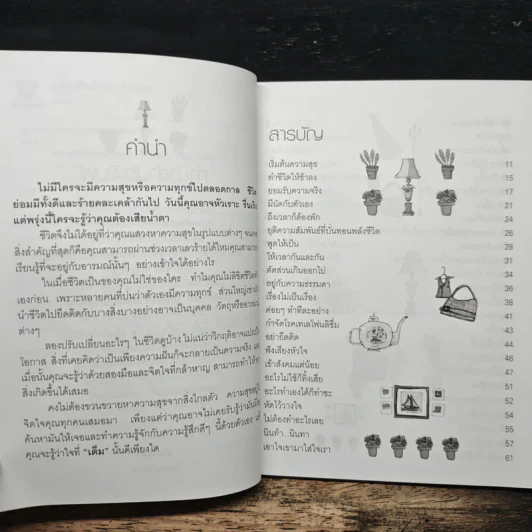 คำนำ
ไม่มีใครจะมีความสุขหรือความทุกข์ไปตลอดกาล ชีวิต
ย่อมมีทั้งดีและร้ายคละเคล้ากันไป วันนี้คุณอาจหัวเราะ
แต่พรุ่งนี้ใครจะรู้ว่าคุณต้องเสียน้ำตา
ชีวิตจึงไม่ได้อยู่ที่ว่าคุณแสวงหาความสุขในรูปแบบต่างๆ
สิ่งสำคัญที่สุดก็คือคุณสามารถผ่านช่วงเวลาเลวร้ายได้ไหมคุณสามารถ
เรียนรู้ที่จะอยู่กับอารมณ์นั้นๆ อย่างเข้าใจได้อย่างไร
ในเมื่อชีวิตเป็นของคุณไม่ใช่ของใคร ทำไมคุณไม่ลิขิตชีวิต
เองก่อน เพราะหลายคนที่บ่นว่าตัวเองมีความทุกข์ ส่วนใหญ่
นำชีวิตไปยึดติดกับบางสิ่งบางอย่างอาจเป็นบุคคล วัตถุหรืออารมณ์
ต่างๆ
ลองปรับเปลี่ยนอะไรๆ ในชีวิตดูบ้าง ไม่แน่ว่าวิกฤติอาจ
โอกาส สิ่งที่เคยคิดว่าเป็นเพียงความฝันก็จะกลายเป็นความจริง
เมื่อนั้นคุณจะรู้ว่าด้วยสองมือและจิตใจที่กล้าหาญ สามารถทำให้
สิ่งเกิดขึ้นได้เสมอ
คงไม่ต้องขวนขวายหาความสุขจากสิ่งใกลตัว ความสุขอยู่
จิตใจคุณทุกคนเสมอมา เพียงแต่ว่าคุณอาจไม่เคยรับรู้ว่ามัน
ค้นหามันให้เจอและทำความรู้จักกับความรู้สึกดีๆ นี้ด้วยตัวเอง
คุณจะรู้ว่าใจที่ "เต็ม" นั้นดีเพียงใด
สารบัญ
เริ่มต้นความสุข 11
ทำชีวิตให้ช้าลง 13
ยอมรับความจริง 15
มีนัดกับตัวเอง 17
ถึงเวลาก็ต้องพัก 19
ยุติความสัมพันธ์ที่บั่นทอนพลังชีวิต 21
พูดให้เป็น
ให้เวลากันและกัน
ตัดส่วนเกินออกไป
อยู่กับความธรรมดา
เรื่องไม่เป็นเรื่อง
ค่อยๆ ทำทีละอย่าง
กำจัดโรคเทเลโฟนลิซึ่ม
อย่ายึดติด
ฟังเสียงหัวใจ
เข้าสังคมแต่น้อย
อะไรไม่ใช้ก็ทิ้งเสีย
อะไรทำเองได้ก็ทำซะ
หัดไว้วางใจ 51
ไม่ต้องทำอะไรเลย 53
นินท้า นินทา 55
เอาใจเขามาใส่ใจเรา 57
61